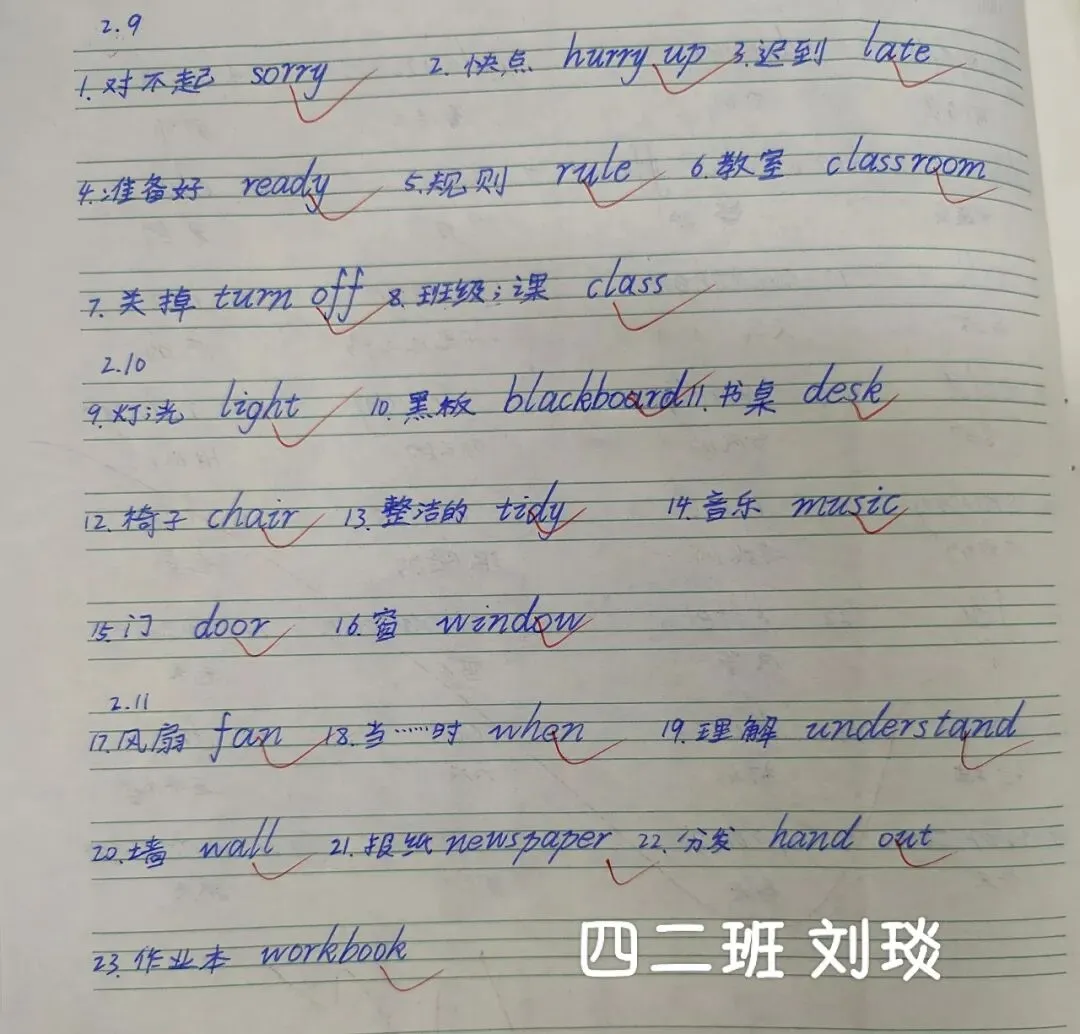 2.9
1. 对不起 sorry 2. 快点 hurry up 3. 迟到 late
4. 准备好 ready 5. 规则 rule 6. 教室 classroom
7. 关掉 turn off 8. 班级;课 class
2.10
9. 灯;光 light 10. 黑板 blackboard 11. 书桌 desk
12. 椅子 chair 13. 整洁的 tidy 14. 音乐 music
15. 门 door 16. 窗 window
2.11
17. 风扇 fan 18. 当……时 when 19. 理解 understand
20. 墙 wall 21. 报纸 newspaper 22. 分发 hand out
23. 作业本 workbook
四二班 刘琰